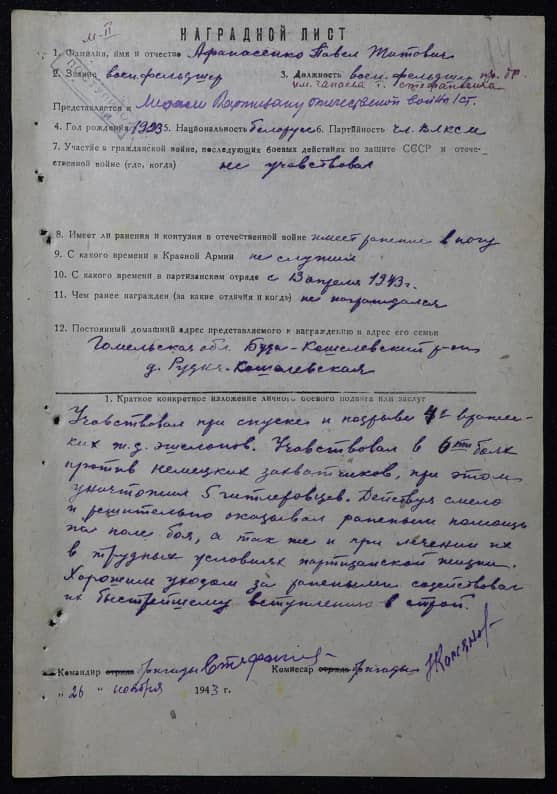 м-II
НАГРАДНОЙ ЛИСТ
1. Фамилия, имя и отчество Афанасенко Павел Титович
2. Звание воен.фельдшер 3. Должность воен.фельдшер пр. бр.
им. Чапаева
Представляется к Медали Партизану отечественной войны I ст.
4. Год рождения 1923 5. Национальность белорус 6. Партийность чл. ВЛКСМ
7. Участие в гражданской войне, последующих боевых действиях по защите СССР и отече-
ственной войне (где, когда) не учавствовал
8. Имеет ли ранения и контузии в отечественной войне имеет ранение в ногу
9. С какого времени в Красной Армии не служил
10. С какого времени в партизанском отряде с 13 апреля 1943г.
11. Чем ранее награжден (за какие отличия и когда) не награждался
12. Постоянный домашний адрес представляемого к награждению и адрес его семьи
Гомельская обл. Буда-Кошелевский р-он
д. Рудня-Кошелевская
1. Краткое конкретное изложение личного боевого подвига или заслуг
Учавствовал при спуске и подрыве 4х вражес-
ких ж.д. эшелонов. Учавствовал в 6ти боях
против немецких захватчиков, при этом
уничтожил 5 гитлеровцев. Действуя смело
и решительно оказывал раненым помощь
на поле боя, а так же и при лечении их
в трудных условиях партизанской жизни.
Хорошим уходом за ранеными содействовал
их быстрейшему вступлению в строй.
Командир отряда бригады Комиссар отряда бригады
„ 26 " ноября 1943 г.